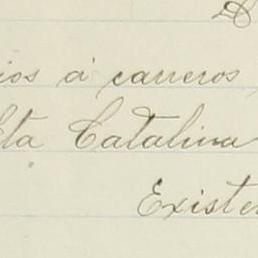 ios á carreros
Sta Catalina
Existen